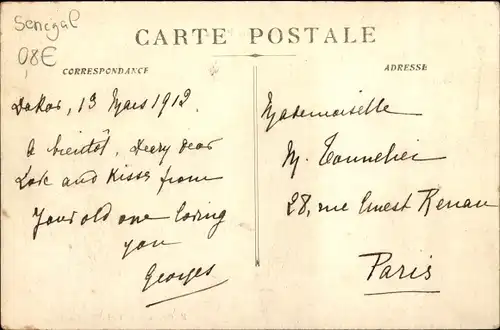 Senegal
08€
CARTE POSTALE
CORRESPONDANCE
Dakar, 13 Mars 1912.
A bientôt, Deary dear
Love and Kisses from
Your old one loving
you
Georges
ADRESSE
Mademoiselle
M. Tonnelier
28, rue Ernest Renan
Paris